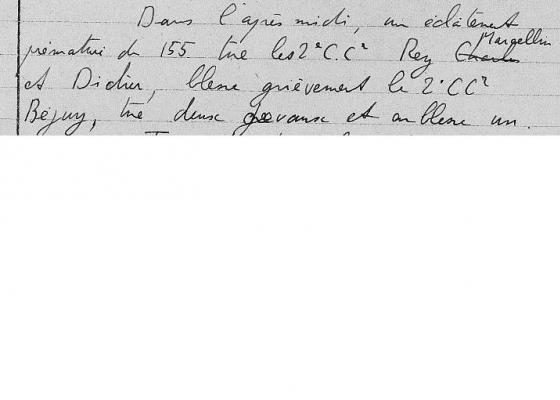 Dans l'après midi, un éclatement
prématuré du 155 tue les 2e C.Cr Rey Charles Margellin
et Didier, blesse grièvement le 2e CCr
Béjuy, tue deux chevaux et en blesse un.